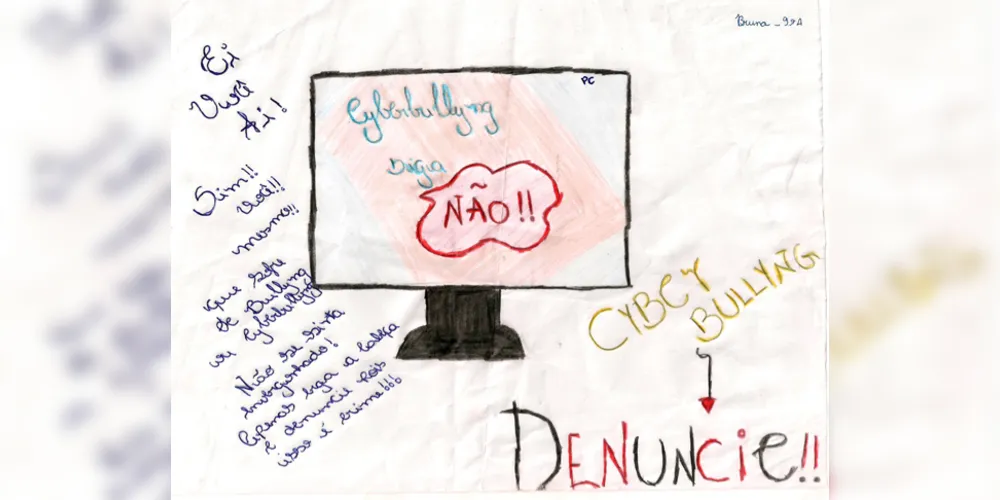 Bruna - 9ºA
Ei
Você
Aí!
Sim!!
você!!
mesmo!!
que sofre
de Bullyng
ou Cyberbullyng
Não se sinta
envergonhado!
Apenas erga a cabeça
e denuncie pois
isso é crime!!!
PC
Cyberbullyng
Diga
NÃO!!
CYBER
BULLYNG
DENUNCiE!!